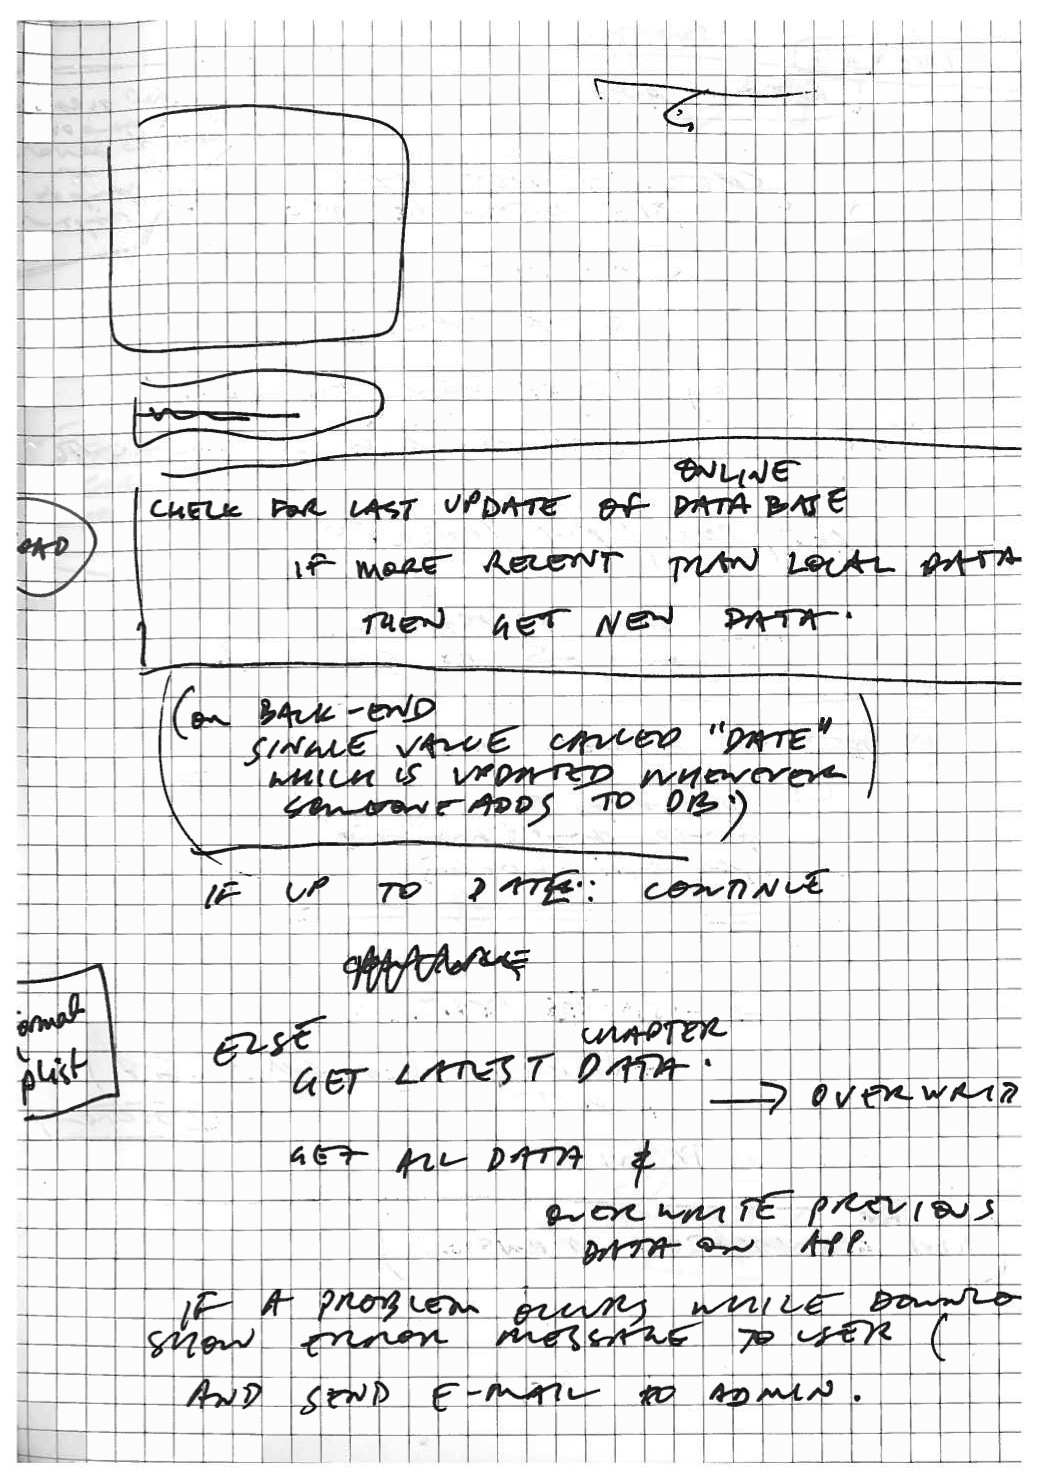 ONLINE
CHECK FOR LAST UPDATE OF DATABASE
OAD
IF MORE RECENT THAN LOCAL DATA
THEN GET NEW DATA.
(ON BACK-END
SINGLE VALUE CALLED "DATE"
WHICH IS UPDATED WHENEVER
SOMEONE ADDS TO DB.)
IF UP TO DATE: CONTINUE
ormat
plist
ELSE
CHAPTER
GET LATEST DATA.
→ OVERWRIT
GET ALL DATA &
OVERWRITE PREVIOUS
DATA ON APP.
IF A PROBLEM OCCURS WHILE DOWNLO
SHOW ERROR MESSAGE TO USER (
AND SEND E-MAIL TO ADMIN.